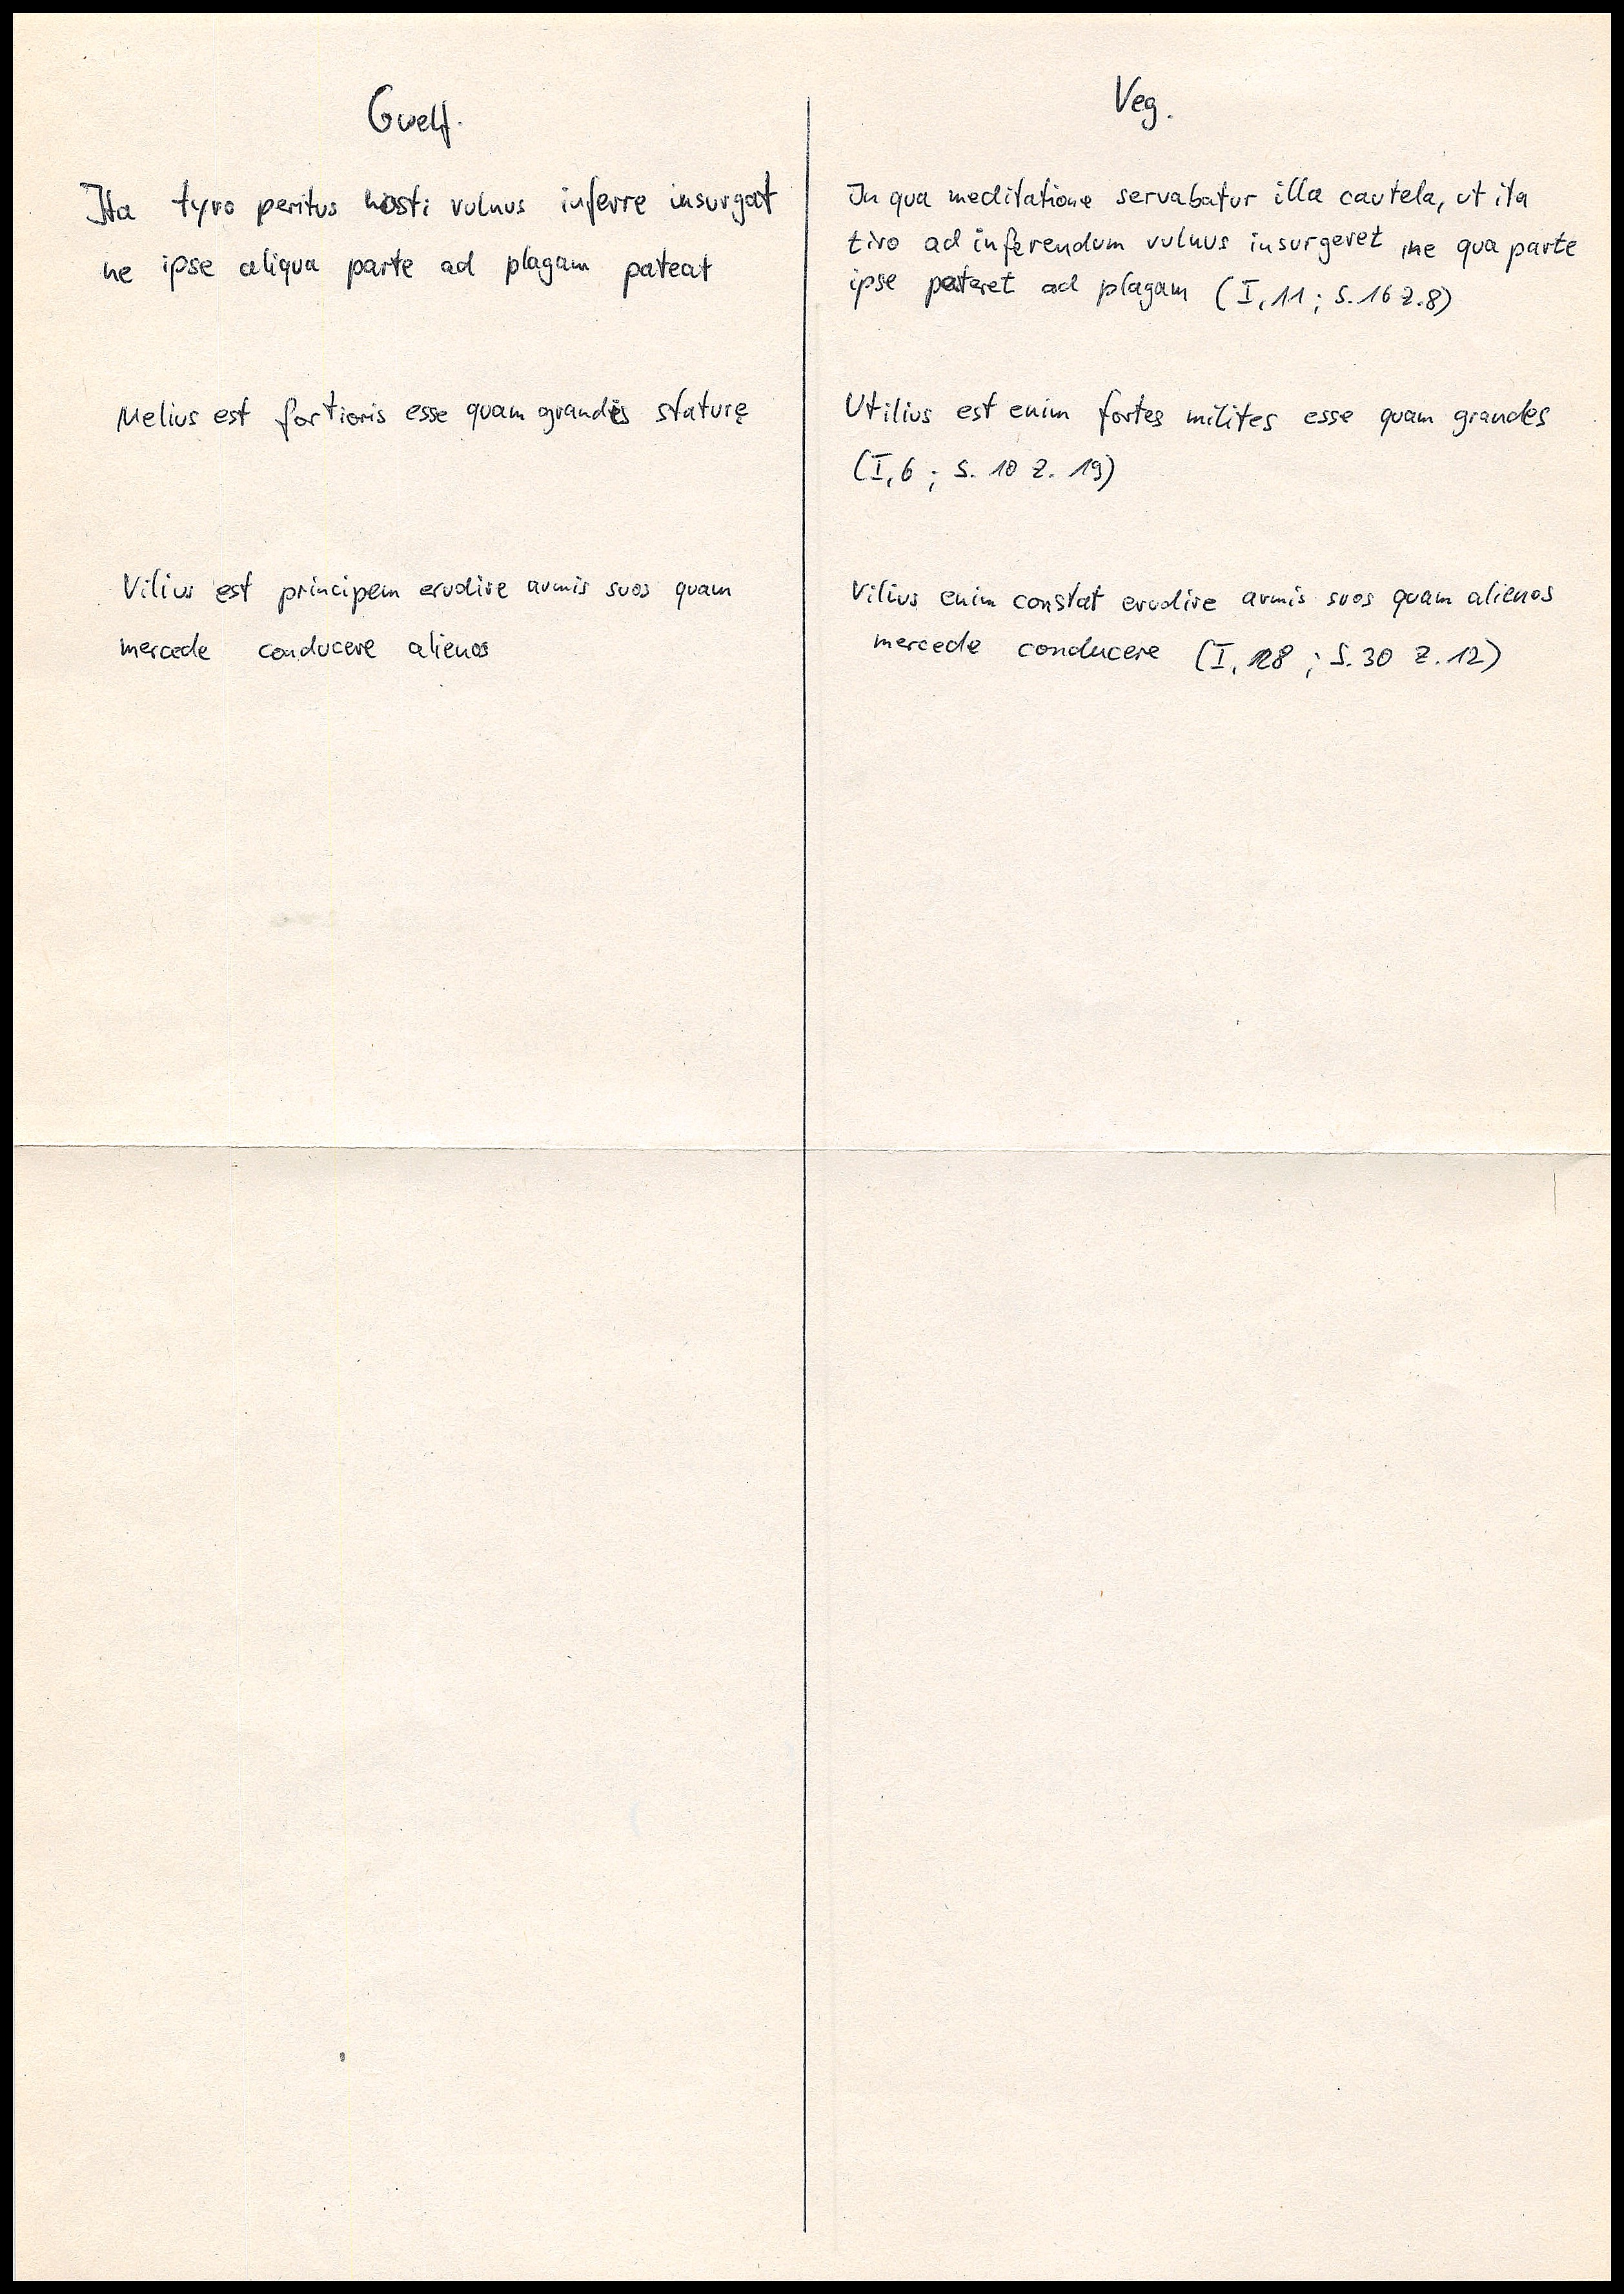 Guelf.
Ita tyro peritus hosti vulnus inferre insurgat
ne ipse aliqua parte ad plagam pateat
Melius est fortioris esse quam grandis staturę
Vilius est principem erudire armis suos quam
mercede conducere alienos
Veg.
In qua meditatione servabatur illa cautela, ut ita
tiro ad inferendum vulnus insurgeret, ne qua parte
ipse pateret ad plagam (I, 11; S. 16 Z. 8)
Utilius est enim fortes milites esse quam grandes
(I, 6; S. 10 Z. 19)
Vilius enim constat erudire armis suos quam alienos
mercede conducere (I, 28; S. 30 Z. 12)